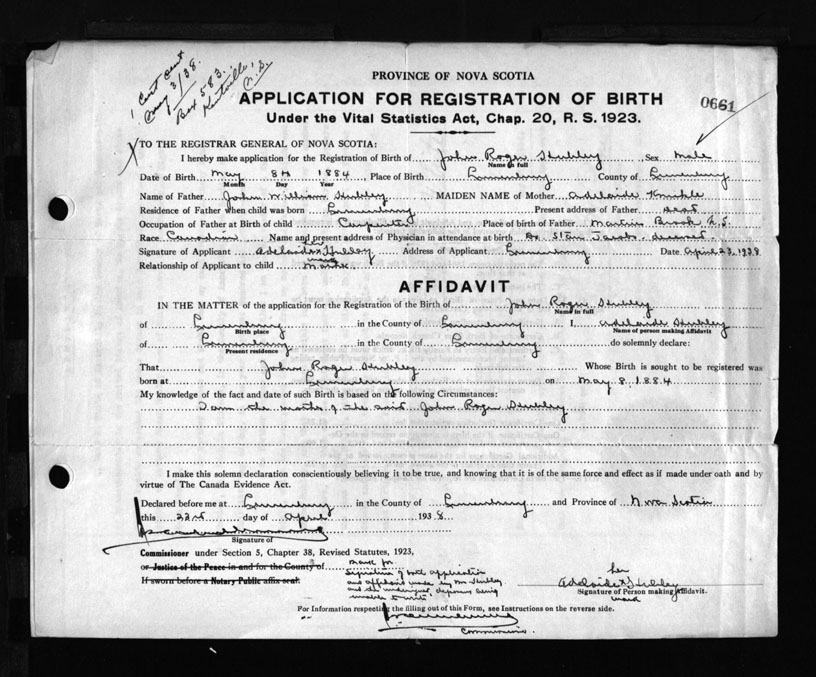 1 Cert sent
May 3/38.
Box 583.
Kentville,
N.S.
PROVINCE OF NOVA SCOTIA
APPLICATION FOR REGISTRATION OF BIRTH
0661
Under the Vital Statistics Act, Chap. 20, R. S. 1923.
TO THE REGISTRAR GENERAL OF NOVA SCOTIA:
I hereby make application for the Registration of Birth of John Roger Sex Male
Name in full
Date of Birth May 8th 1884 Place of Birth Lunenburg County of Lunenburg
Month Day Year
Name of Father John William MAIDEN NAME of Mother Adelaide
Residence of Father when child was born Lunenburg Present address of Father
Occupation of Father at Birth of child Carpenter Place of birth of Father Martins Brook N.S.
Race Canadian Name and present address of Physician in attendance at birth Dr Jacobs
her
Signature of Applicant Adelaide x Address of Applicant Lunenburg Date April 23, 1938
mark
Relationship of Applicant to child Mother
AFFIDAVIT
IN THE MATTER of the application for the Registration of the Birth of John Roger
Name in full
of Lunenburg in the County of Lunenburg I, Adelaide
Birth place Name of person making Affidavit
of Lunenburg in the County of Lunenburg do solemnly declare:
Present residence
That John Roger Whose Birth is sought to be registered was
born at Lunenburg on May 8, 1884
My knowledge of the fact and date of such Birth is based on the following Circumstances:
I am the mother of the said John Roger
I make this solemn declaration conscientiously believing it to be true, and knowing that it is of the same force and effect as if made under oath and by
virtue of The Canada Evidence Act.
Declared before me at Lunenburg in the County of Lunenburg and Province of Nova Scotia
this 23rd day of April 1938
Signature of
Commissioner under Section 5, Chapter 38, Revised Statutes, 1923,
or Justice of the Peace in and for the County of
If sworn before a Notary Public affix seal.
mark for
signature of both application
and affidavit made by Mrs
unable to write
her
Adelaide x
Signature of Person making Affidavit.
mark
For Information respecting the filling out of this Form, see Instructions on the reverse side.
Commissioner.